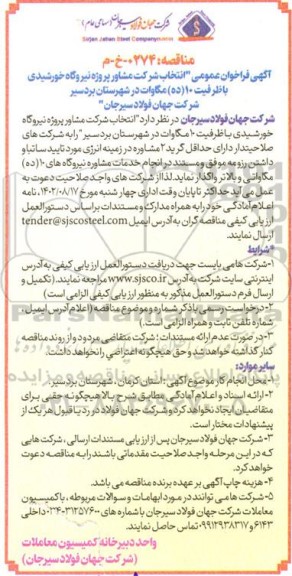 شرکت جهان فولاد سیرجان (سهامی عام)
Sirjan Jahan Steel Company
مناقصه: ۰۲۷۴-خ-م
آگهی فراخوان عمومی "انتخاب شرکت مشاور پروژه نیروگاه خورشیدی
با ظرفیت ۱۰ (ده) مگاوات در شهرستان بردسیر
شرکت جهان فولاد سیرجان"
شرکت جهان فولاد سیرجان در نظر دارد "انتخاب شرکت مشاور پروژه نیروگاه
خورشیدی با ظرفیت ۱۰ مگاوات در شهرستان بردسیر" را به شرکت های
صلاحیتدار دارای حداقل گرید ۲ مشاوره در زمینه انرژی مورد تایید ساتبا و
داشتن رزومه موفق و مستند در انجام خدمات مشاوره نیروگاه های ۱۰ (ده)
مگاواتی و بالاتر واگذار نماید. لذا از شرکت های واجد صلاحیت دعوت به
عمل می آید حداکثر تا پایان وقت اداری چهارشنبه مورخ ۱۴۰۲/۰۸/۱۷، نامه
اعلام آمادگی خود را به همراه مدارک و مستندات بر اساس دستورالعمل
ارزیابی کیفی مناقصه گران به آدرس ایمیل tender@sjscosteel.com
ارسال نمایند.
*شرایط
۱-شرکت ها می بایست جهت دریافت دستورالعمل ارزیابی کیفی به آدرس
اینترنتی سایت شرکت به آدرس www.sjsco.ir مراجعه نمایند. (تکمیل و
ارسال فرم دستورالعمل مذکور به منظور ارزیابی کیفی الزامی است)
۲-درخواست رسمی با ذکر شماره و موضوع مناقصه (اعلام آدرس ایمیل،
شماره تلفن ثابت و همراه الزامی است.)
۳-در صورت عدم ارائه مستندات؛ شرکت متقاضی مردود و از روند مناقصه
کنار گذاشته خواهد شد و حق هیچگونه اعتراضی را نخواهد داشت.
سایر موارد:
۱-محل انجام کار موضوع آگهی: استان کرمان، شهرستان بردسیر.
۲-ارائه اسناد و اعلام آمادگی مطابق شرح بالا هیچگونه حقی برای
متقاضیان ایجاد نخواهد کرد و شرکت جهان فولاد در رد یا قبول هر یک از
پیشنهادات مختار است.
۳-شرکت جهان فولاد سیرجان پس از ارزیابی مستندات ارسالی، شرکت هایی
که در این مرحله واجد صلاحیت مقدماتی باشند را به مناقصه دعوت
خواهد کرد.
۴-هزینه چاپ آگهی بر عهده برنده مناقصه می باشد.
۵-شرکت ها می توانند در مورد ابهامات و سوالات مربوطه، با کمیسیون
معاملات شرکت جهان فولاد سیرجان با شماره های ۰۳۴۰۳۱۲۵۷۶۰۰ داخلی
۶۱۴۳ و ۰۹۹۱۲۹۳۸۳۱۷ تماس حاصل نمایند.
واحد دبیرخانه کمیسیون معاملات
(شرکت جهان فولاد سیرجان)